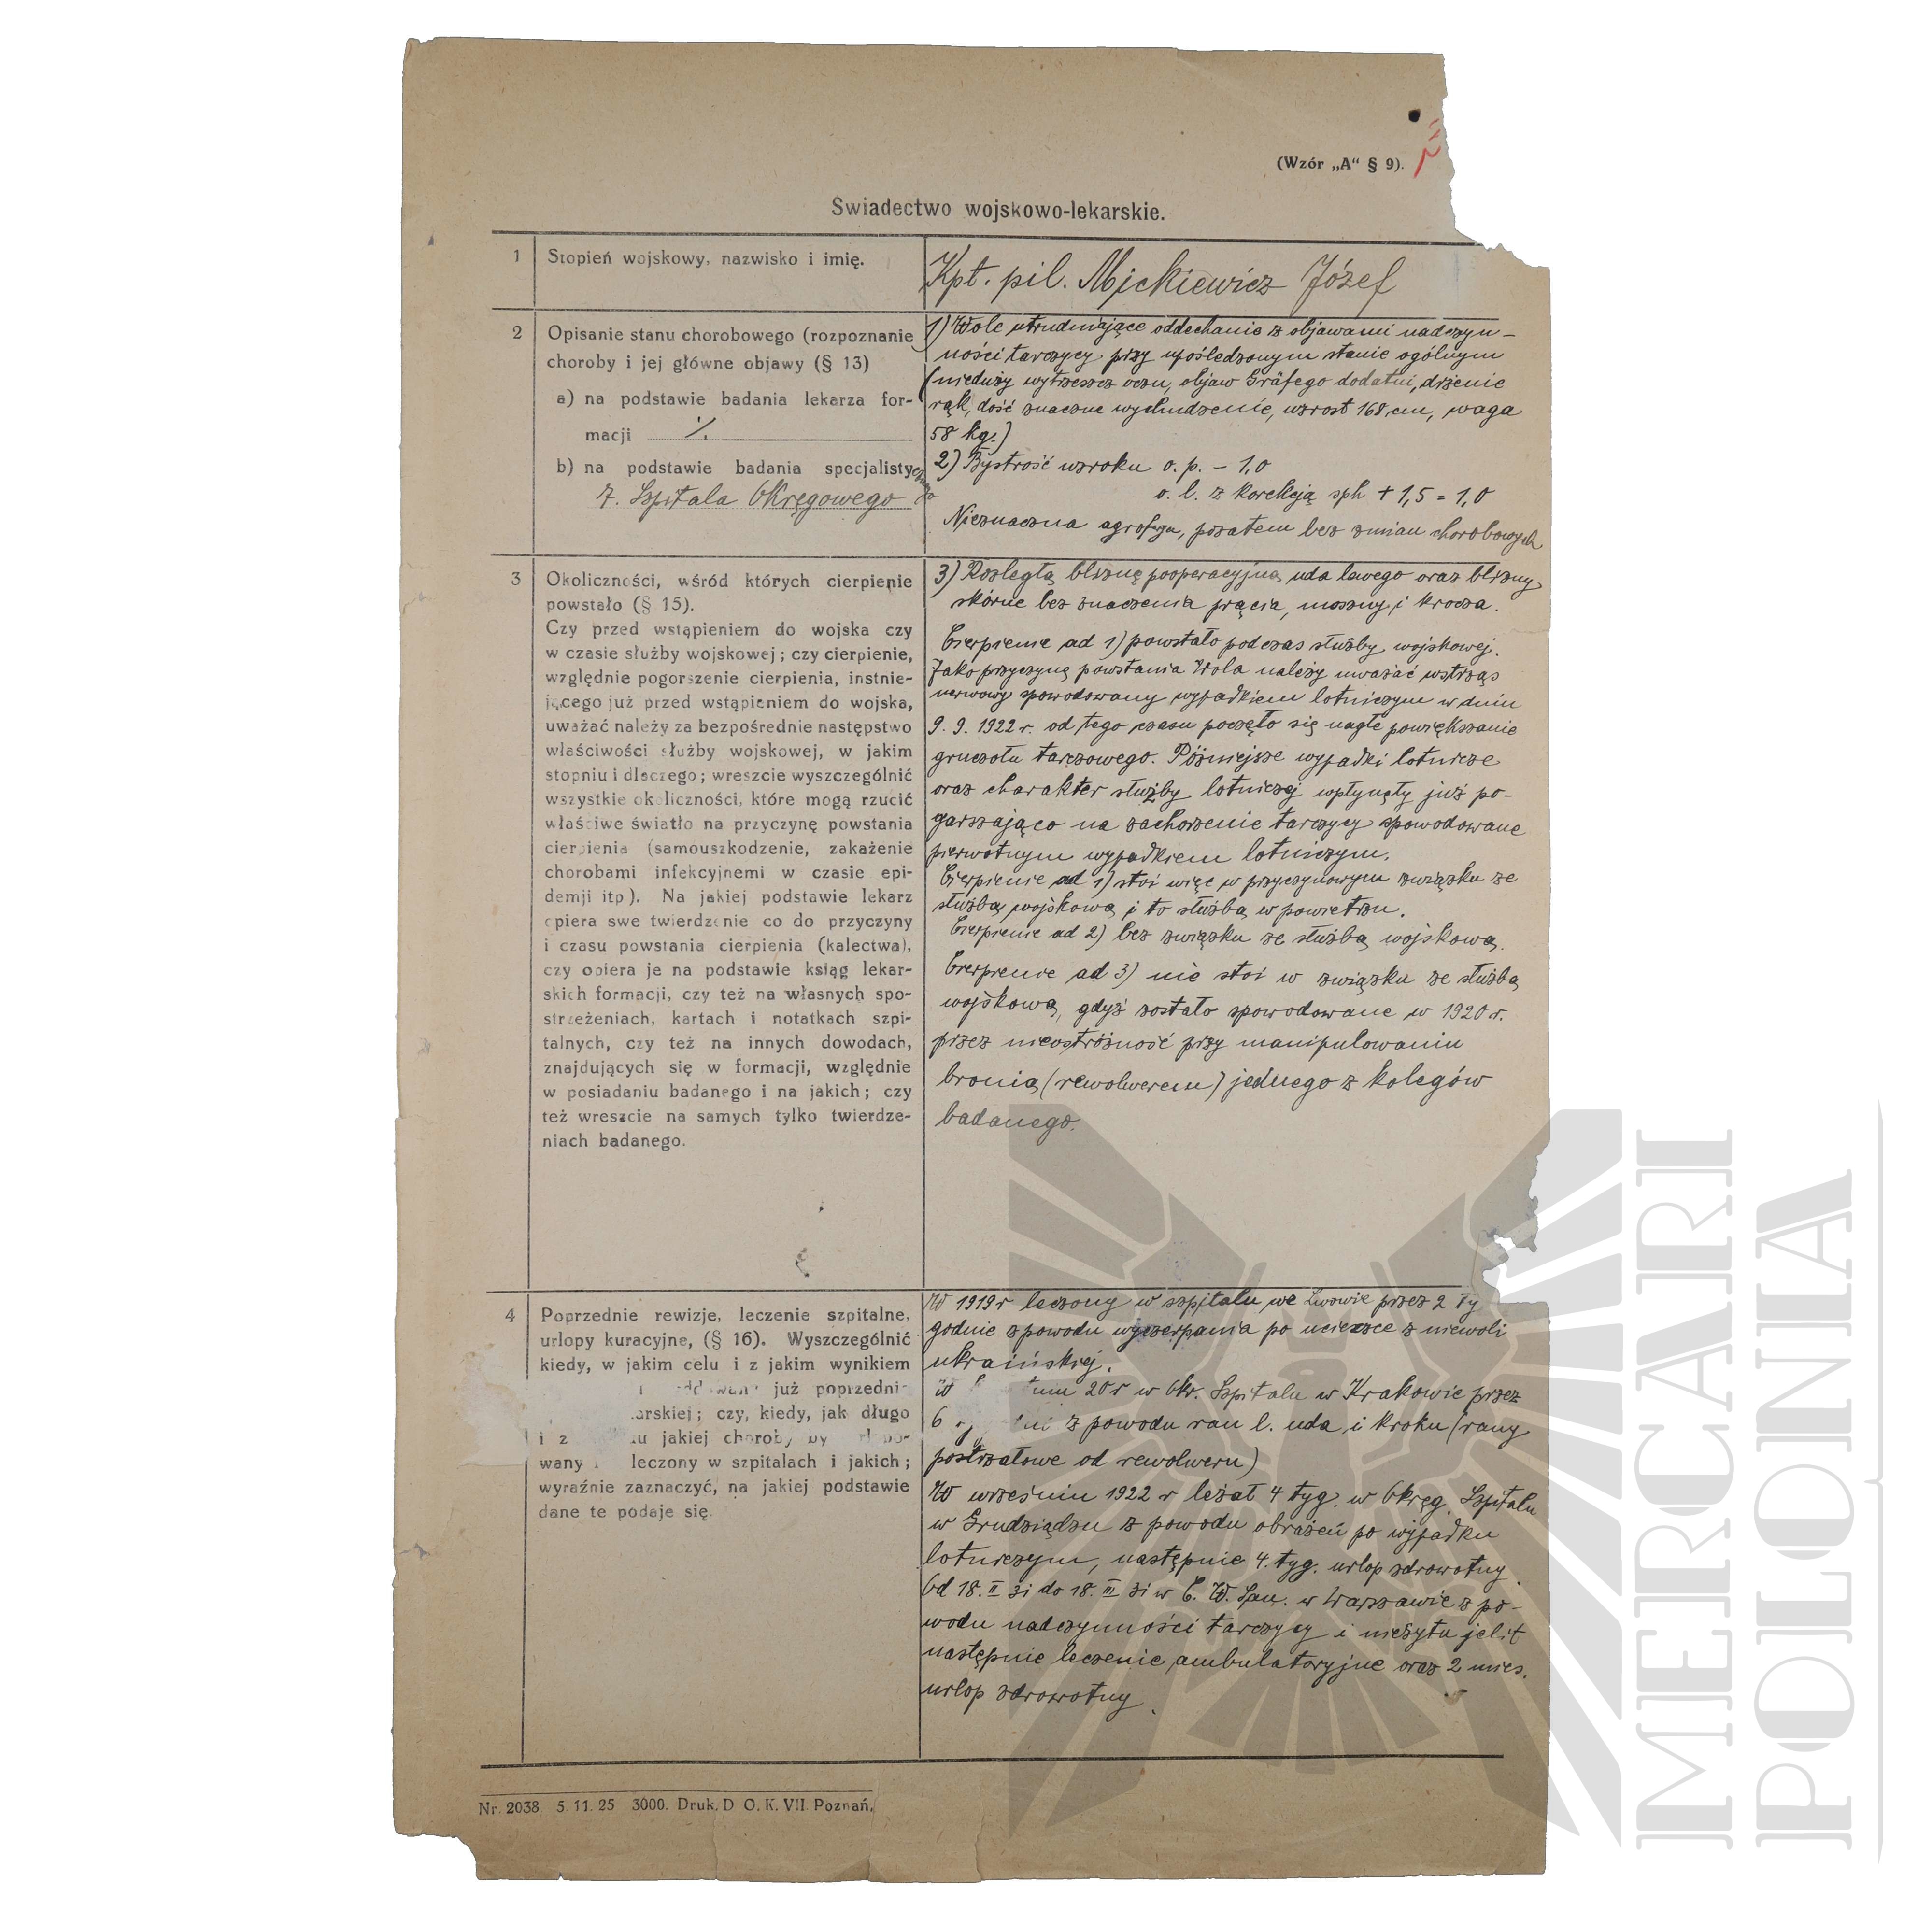 (Wzór „A“ § 9).
Swiadectwo wojskowo-lekarskie.
1 Stopień wojskowy, nazwisko i imię.
Kpt. pil. Mickiewicz Józef
2 Opisanie stanu chorobowego (rozpoznanie
choroby i jej główne objawy (§ 13)
a) na podstawie badania lekarza for-
macji ./.
b) na podstawie badania specjalistycznego
7. Szpitala Okręgowego
1) Wole utrudniające oddechanie z objawami nadczyn-
ności tarczycy przy upośledzonym stanie ogólnym
(nieduży wytrzeszcz oczu, objaw Gräfego dodatni, drżenie
rąk, dość znaczne wychudzenie, wzrost 168 cm, waga
58 kg.)
2) Bystrość wzroku o. p. – 1,0
o. l. z korekcją sph + 1,5 = 1,0
Nieznaczna pozatem bez zmian chorobowych
3 Okoliczności, wśród których cierpienie
powstało (§ 15).
Czy przed wstąpieniem do wojska czy
w czasie służby wojskowej; czy cierpienie,
względnie pogorszenie cierpienia, instnie-
jącego już przed wstąpieniem do wojska,
uważać należy za bezpośrednie następstwo
właściwości służby wojskowej, w jakim
stopniu i dlaczego; wreszcie wyszczególnić
wszystkie okoliczności, które mogą rzucić
właściwe światło na przyczynę powstania
cierpienia (samouszkodzenie, zakażenie
chorobami infekcyjnemi w czasie epi-
demji itp). Na jakiej podstawie lekarz
opiera swe twierdzenie co do przyczyny
i czasu powstania cierpienia (kalectwa),
czy opiera je na podstawie ksiąg lekar-
skich formacji, czy też na własnych spo-
strzeżeniach, kartach i notatkach szpi-
talnych, czy też na innych dowodach,
znajdujących się w formacji, względnie
w posiadaniu badanego i na jakich; czy
też wreszcie na samych tylko twierdze-
niach badanego.
3) Rozległą bliznę pooperacyjną uda lewego oraz blizny
skórne bez znaczenia prącia, moszny i krocza.
Cierpienie ad 1) powstało podczas służby wojskowej.
Jako przyczynę powstania Wola należy uważać wstrząs
nerwowy spowodowany wypadkiem lotniczym w dniu
9. 9. 1922 r. od tego czasu poczęło się nagłe powiększanie
gruczołu tarczowego. Późniejsze wypadki lotnicze
oraz charakter służby lotniczej wpłynęły już po-
garszająco na zachorzenie tarczycy spowodowane
pierwotnym wypadkiem lotniczym.
Cierpienie ad 1) stoi więc w przyczynowym związku ze
służbą wojskową i to służbą w powietrzu.
Cierpienie ad 2) bez związku ze służbą wojskową.
Cierpienie ad 3) nie stoi w związku ze służbą
wojskową, gdyż zostało spowodowane w 1920 r.
przez nieostrożność przy manipulowaniu
bronią (rewolwerem) jednego z kolegów
badanego.
4 Poprzednie rewizje, leczenie szpitalne,
urlopy kuracyjne, (§ 16). Wyszczególnić
kiedy, w jakim celu i z jakim wynikiem
już poprzedni
arskiej; czy, kiedy, jak długo
i z jakiej choroby
wany leczony w szpitalach i jakich;
wyraźnie zaznaczyć, na jakiej podstawie
dane te podaje się.
W 1919 r leczony w szpitalu we Lwowie przez 2 ty
godnie z powodu wyczerpania po ucieczce z niewoli
ukraińskiej.
20 r w Okr. Szpitalu w Krakowie przez
6 z powodu ran l. uda i kroku (rany
postrzałowe od rewolweru)
W wrześniu 1922 r leżał 4 tyg. w Okręg. Szpitalu
w Grudziądzu z powodu obrażeń po wypadku
lotniczym, następnie 4. tyg. urlop zdrowotny.
Od 18. II 31 do 18. III 31 w C. W. San. w Warszawie z po-
wodu nadczynności tarczycy i nieżytu jelit
następnie leczenie ambulatoryjne oraz 2 mies.
urlop zdrowotny.
Nr. 2038 5. 11. 25 3000. Druk. D O. K. VII. Poznań.
MERCARI
POLONIA